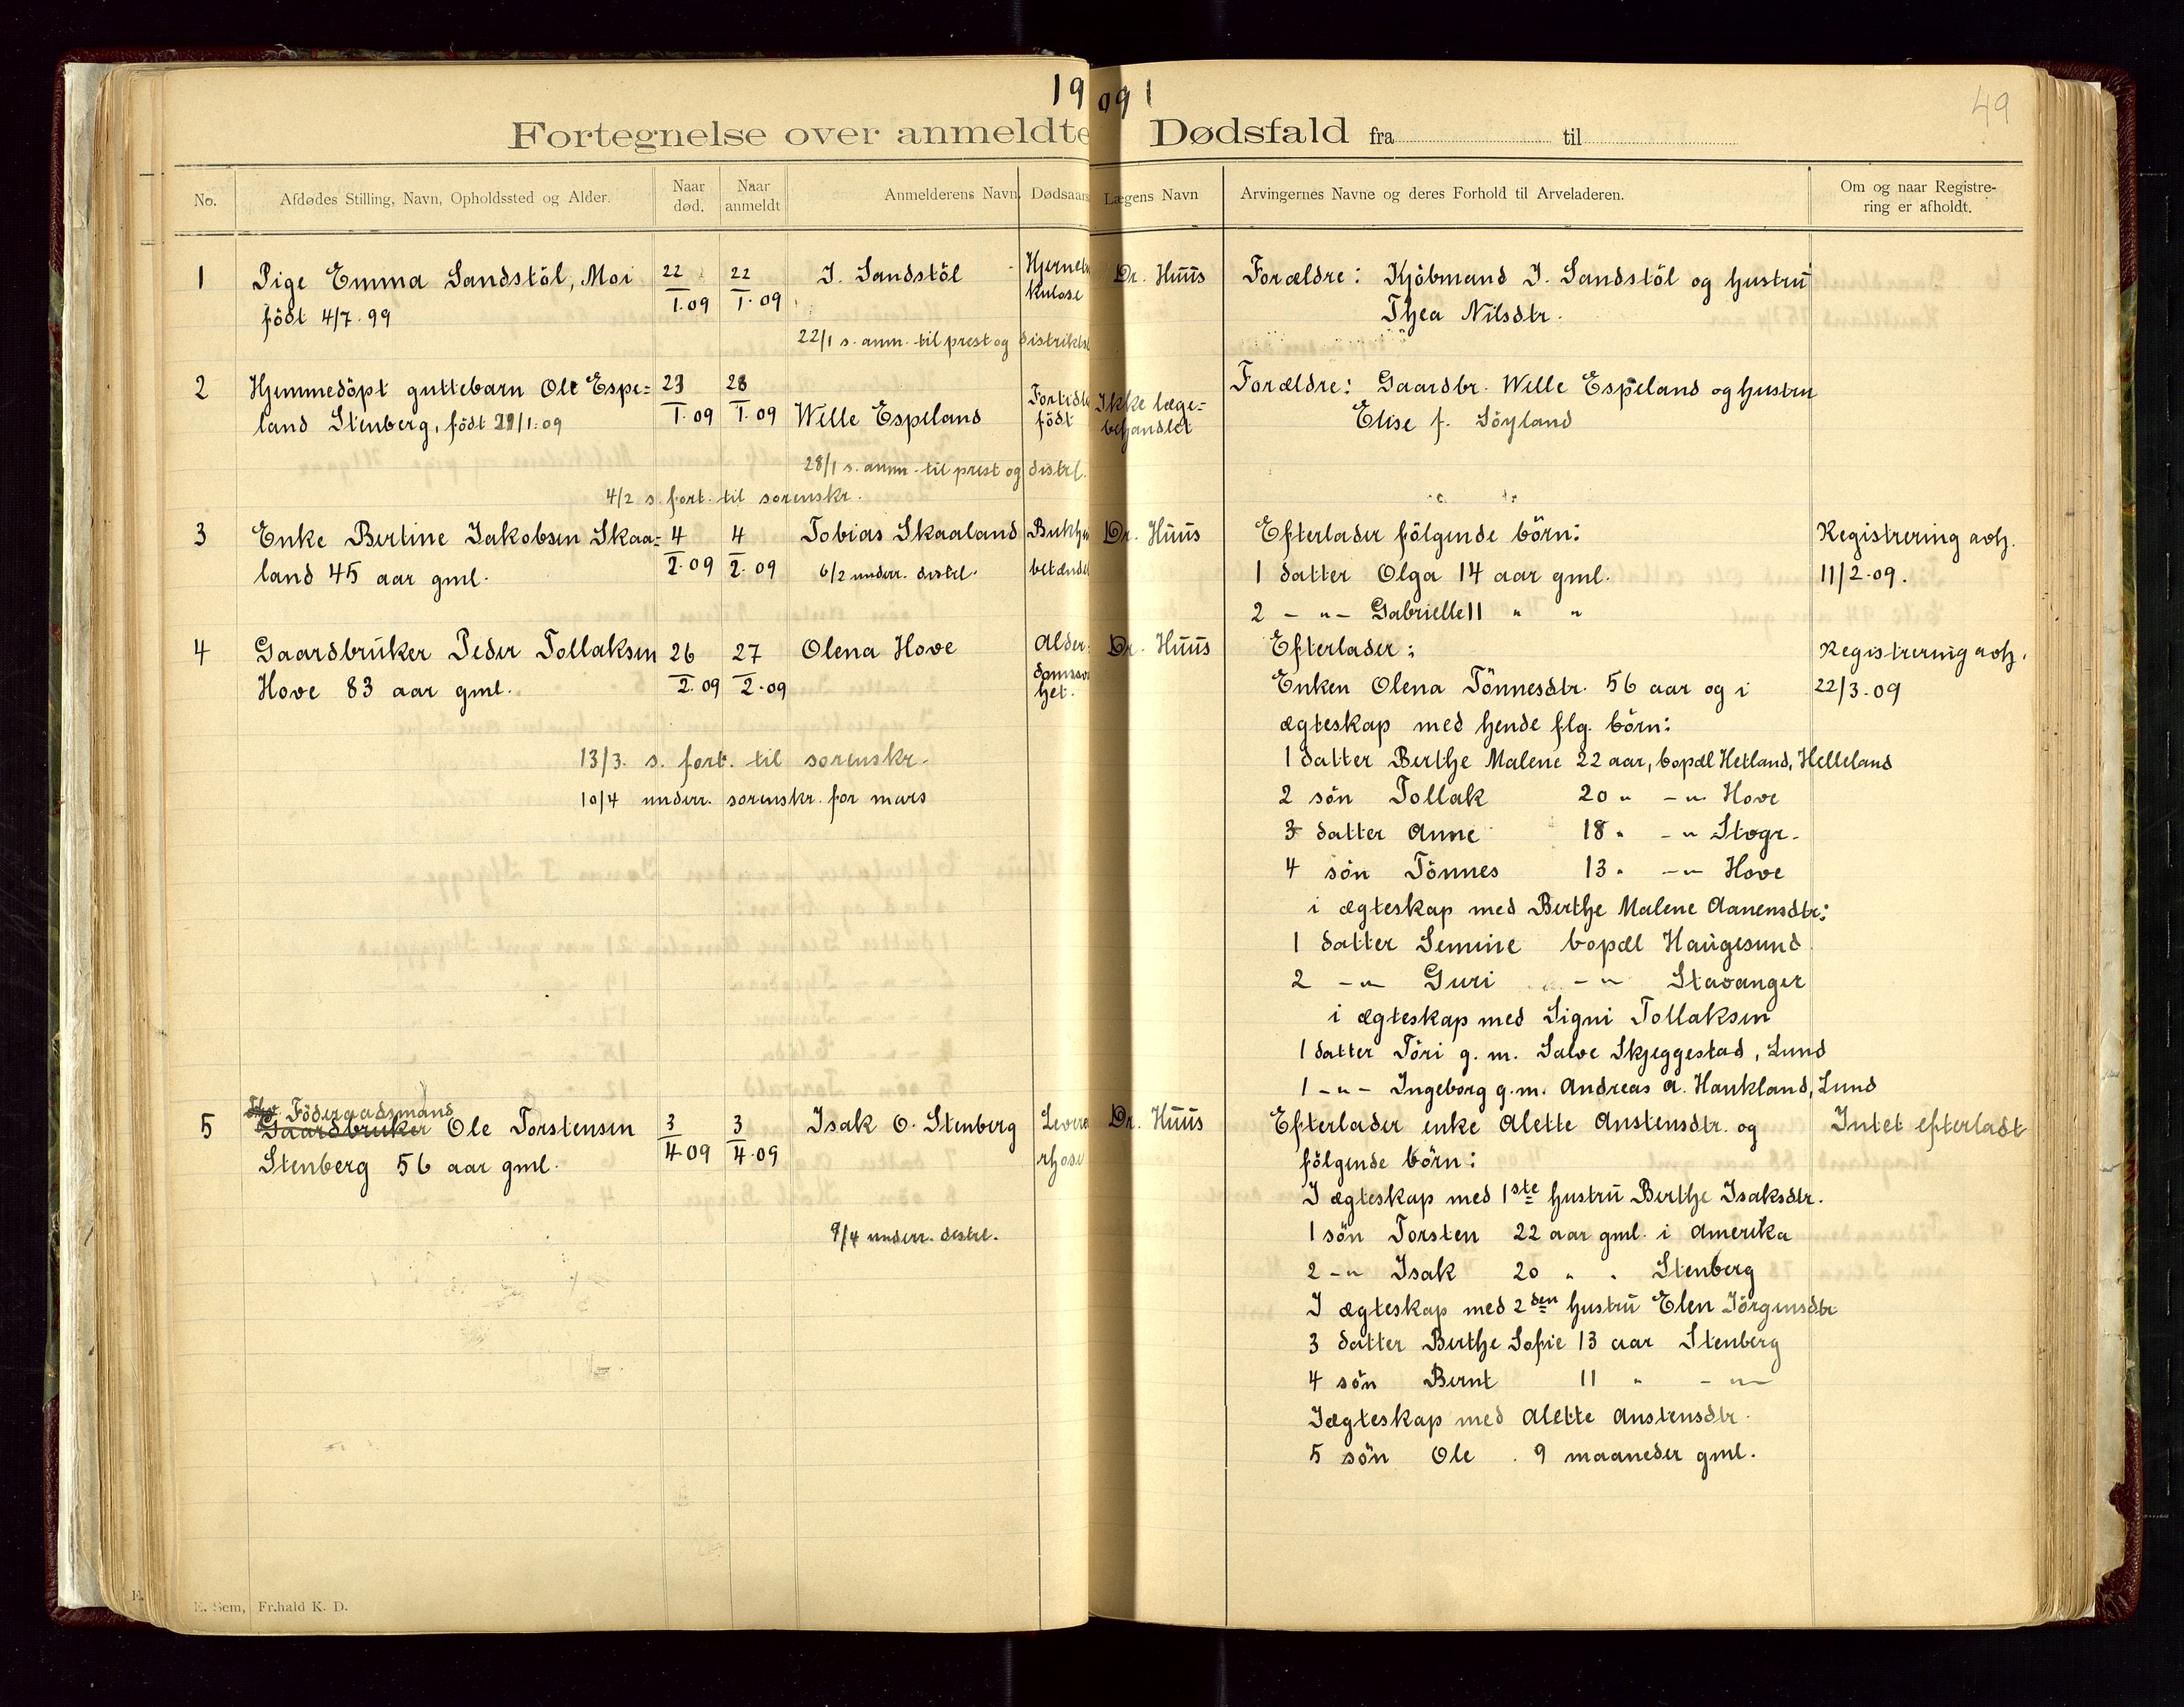 1909 1
49
Fortegnelse over anmeldte Dødsfald fra til
No.
Afdødes Stilling, Navn, Opholdssted og Alder.
Naar død.
Naar anmeldt
Anmelderens Navn.
Dødsaars
Lægens Navn
Arvingernes Navne og deres Forhold til Arveladeren.
Om og naar Registre-
ring er afholdt.
1 Pige Emma Sandstöl, Moi 22 22 J. Sandstöl Dr. Huus Forældre: Kjöbmand J. Sandstöl og hustru
födt 4/7.99 1.09 1.09 kulose Thea Nilsdtr.
22/1 s. anm. til prest og distriktsl
2 Hjemmedöpt guttebarn Ole Espe= 23 28 Forældre: Gaardbr. Wille Espeland og hustru
land Stenberg, födt 21/1.09 1.09 1.09 Wille Espeland födt Ikke læge= Elise f. Söyland
behandlet
28/1 s. anm. til prest og distrl.
4/2 s. fort. til sorenskr.
3 Enke Bertine Jakobsen Skaa= 4 4 Tobias Skaaland Dr. Huus Efterlader fölgende börn: Registrering avh.
land 45 aar gml. 2.09 2.09 6/2 underr. distrl. 1 datter Olga 14 aar gml. 11/2.09.
2 -"- Gabrielle 11 " "
4 Gaardbruker Peder Tollaksen 26 27 Olena Hove Alder= Dr. Huus Efterlader: Registrering avh.
Hove 83 aar gml. 2.09 2.09 het. Enken Olena Tönnesdtr. 56 aar og i 22/3.09
ægteskap med hende flg. börn:
13/3. s. fort. til sorenskr. 1 datter Berthe Malene 22 aar, bopæl Hetland, Helleland
10/4 underr. sorenskr. for mars 2 sön Tollak 20 " -"- Hove
3 datter Anne 18 " -"- Stogr.
4 sön Tönnes 13 " -"- Hove
i ægteskap med Berthe Malene Aanensdtr:
1 datter Semine bopæl Haugesund
2 -"- Guri -"- Stavanger
i ægteskap med Signi Tollaksen
1 datter Töri g. m. Salve Skjeggestad, Lund
1 -"- Ingeborg g.m. Andreas A. Haukland, Lund
Föderaadsmand
5 Gaardbruker Ole Torstensen 3 3 Isak O. Stenberg Dr. Huus Efterlader enke Alette Anstensdtr. og Intet efterladt
Stenberg 56 aar gml. 4.09 4.09 fölgende börn:
I ægteskap med 1ste hustru Berthe Isaksdtr.
9/4 underr. distrl. 1 sön Torsten 22 aar gml. i Amerika
2 -"- Isak 20 " " Stenberg
I ægteskap med 2den hustru Elen Jörgensdtr
3 datter Berthe Sofie 13 aar Stenberg
4 sön Bernt 11 " -"-
I ægteskap med Alette Anstensdtr.
5 sön Ole . 9 maaneder gml.
E. Sem, Fr.hald K. D.